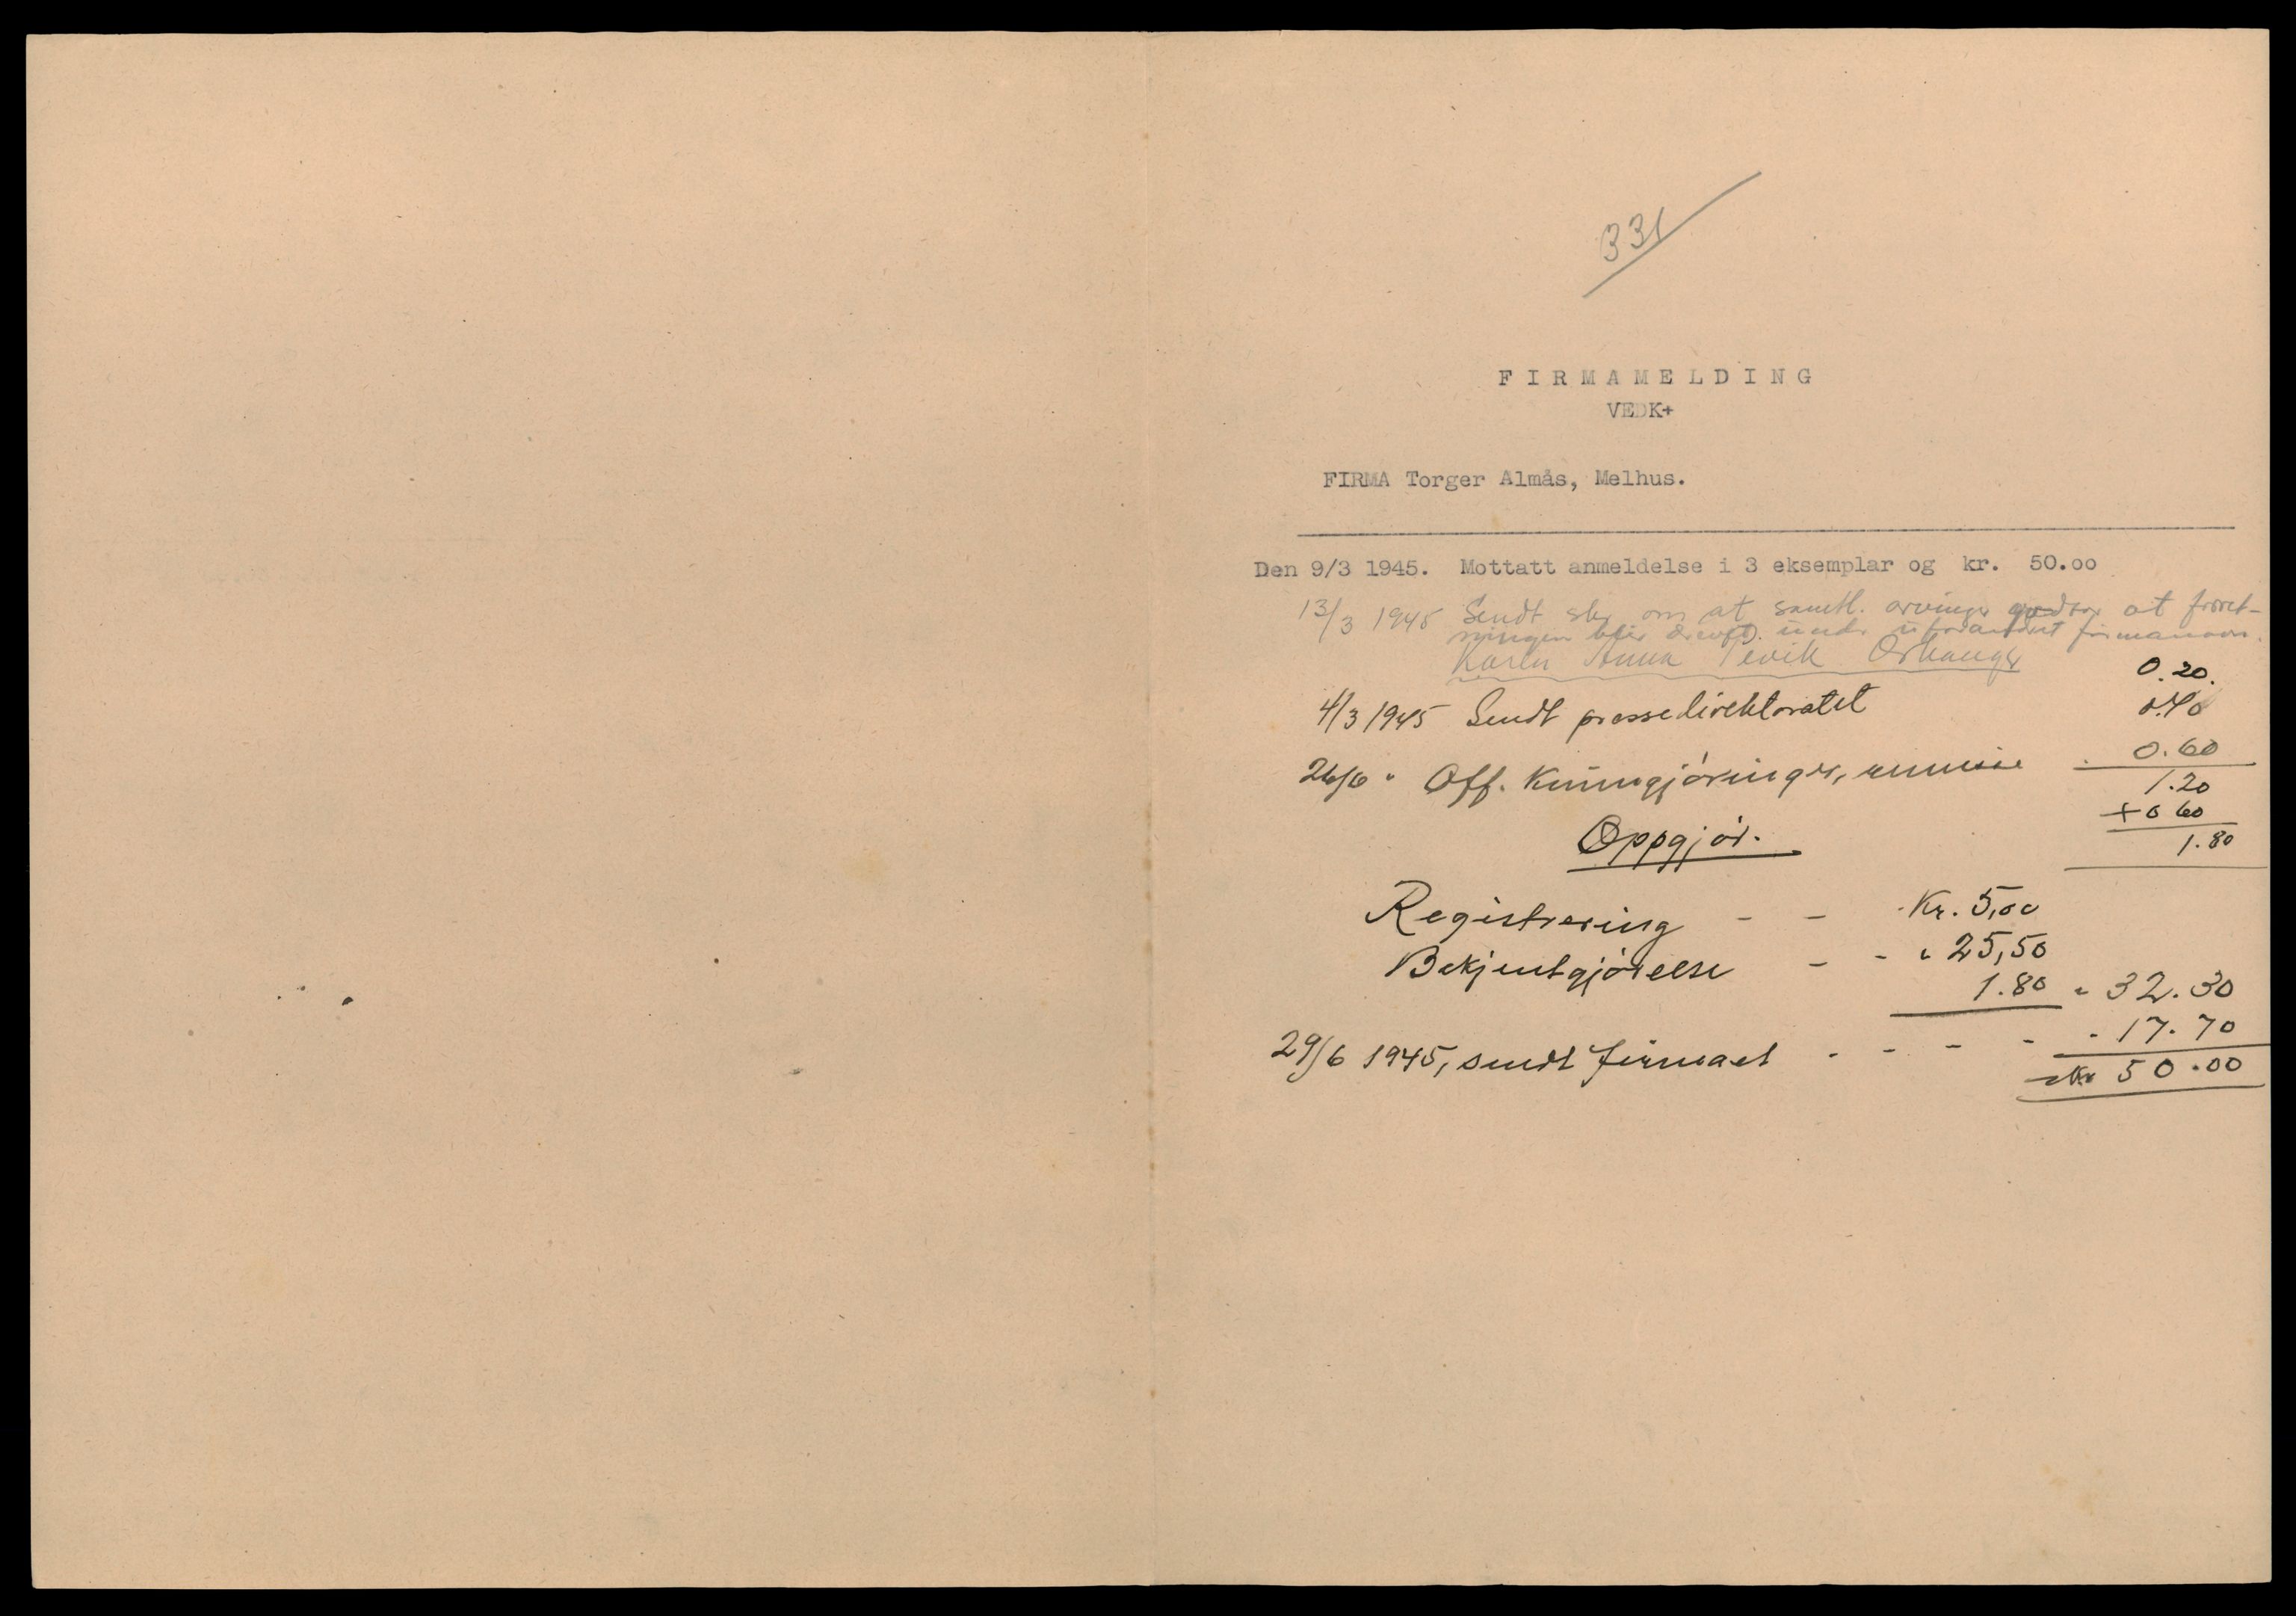 331
FIRMAMELDING
VEDK+
FIRMA Torger Almås, Melhus.
Den 9/3 1945. Mottatt anmeldelse i 3 eksemplar og kr. 50.oo
13/3 1945 Sendt skr om at samtl. arvinger godtar at forret-
ningen blir drevet under uforandret firmanavn.
Karen Anna Orkanger
0.20.
4/3 1945 Sendt pressedirektoratet 0.40
26/6 " Off. Kunngjøringer, 0.60
1.20
+ 0 60
1.80
Oppgjør.
Registrering - - Kr. 5,00
Bekjentgjørelse - - " 25,50
1.80 " 32.30
29/6 1945, sendt firmaet - - - - " 17.70
Kr 50.00